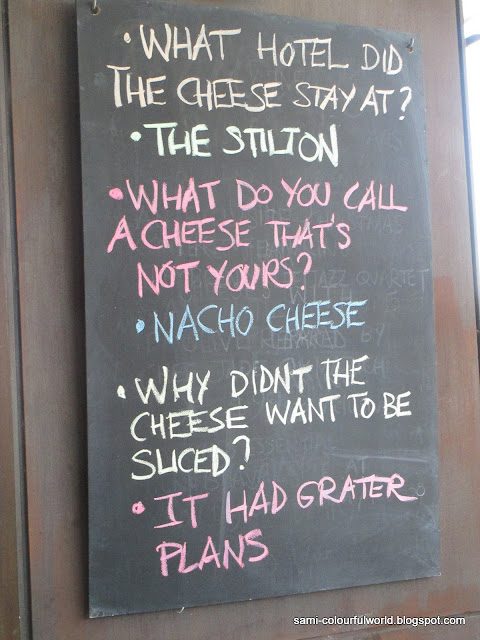 • WHAT HOTEL DID
THE CHEESE STAY AT?
• THE STILTON
• WHAT DO YOU CALL
A CHEESE THAT'S
NOT YOURS?
• NACHO CHEESE
• WHY DIDNT THE
CHEESE WANT TO BE
SLICED?
• IT HAD GRATER
PLANS
sami-colourfulworld.blogspot.com